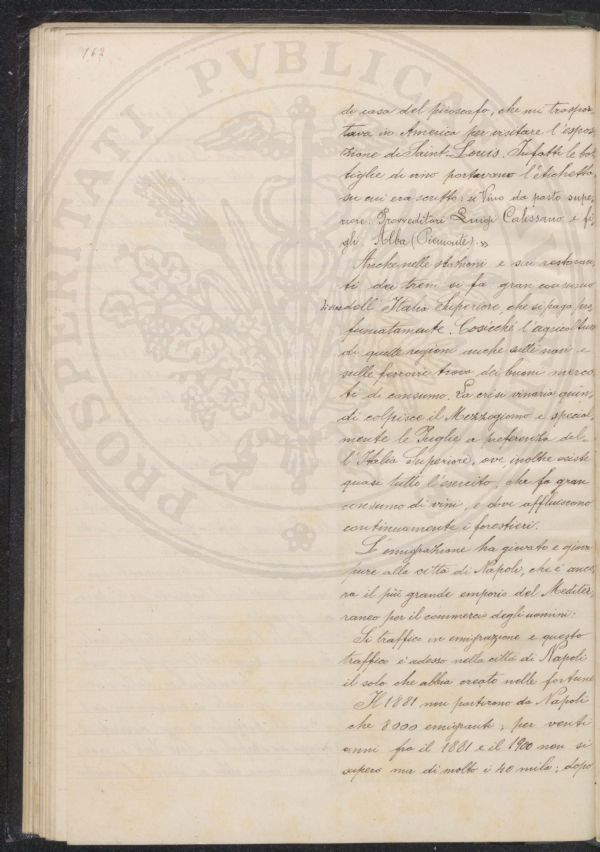 162
PROSPERITATI PVBLICAE
di casa del piroscafo, che mi traspor-
tava in America per visitare l'espo-
zione di Saint-Louis. Infatti le bot-
tiglie di vino portavano l'etichetta,
su cui era scritto: « Vino da pasto supe-
riore. Provveditori Luigi Calissano e fi-
gli. Alba (Piemonte). »
Anche nelle stazioni e sui restoran-
ti dei treni si fa gran consumo
di vino dell'Italia Superiore, che si paga pro-
fumatamente. Cosicchè l'agricoltura
di quelle regioni anche sulle navi e
sulle ferrovie trova dei buoni merca-
ti di consumo. La crisi vinaria quin-
di colpisce il Mezzogiorno e special-
mente le Puglie a preferenza del-
l'Italia Superiore, ove inoltre esiste
quasi tutto l'esercito, che fa gran
consumo di vini, e dove affluiscono
continuamente i forestieri.
L'emigrazione ha giovato e giova
pure alla città di Napoli, che è anco-
ra il più grande emporio del Mediter-
raneo per il commercio degli uomini.
Si traffica in emigrazione e questo
traffico è adesso nella città di Napoli
il solo che abbia creato nelle fortune
Il 1881 non partirono da Napoli
che 8000 emigranti; per venti
anni fra il 1881 e il 1900 non si
superò mai di molto i 40 mila; dopo